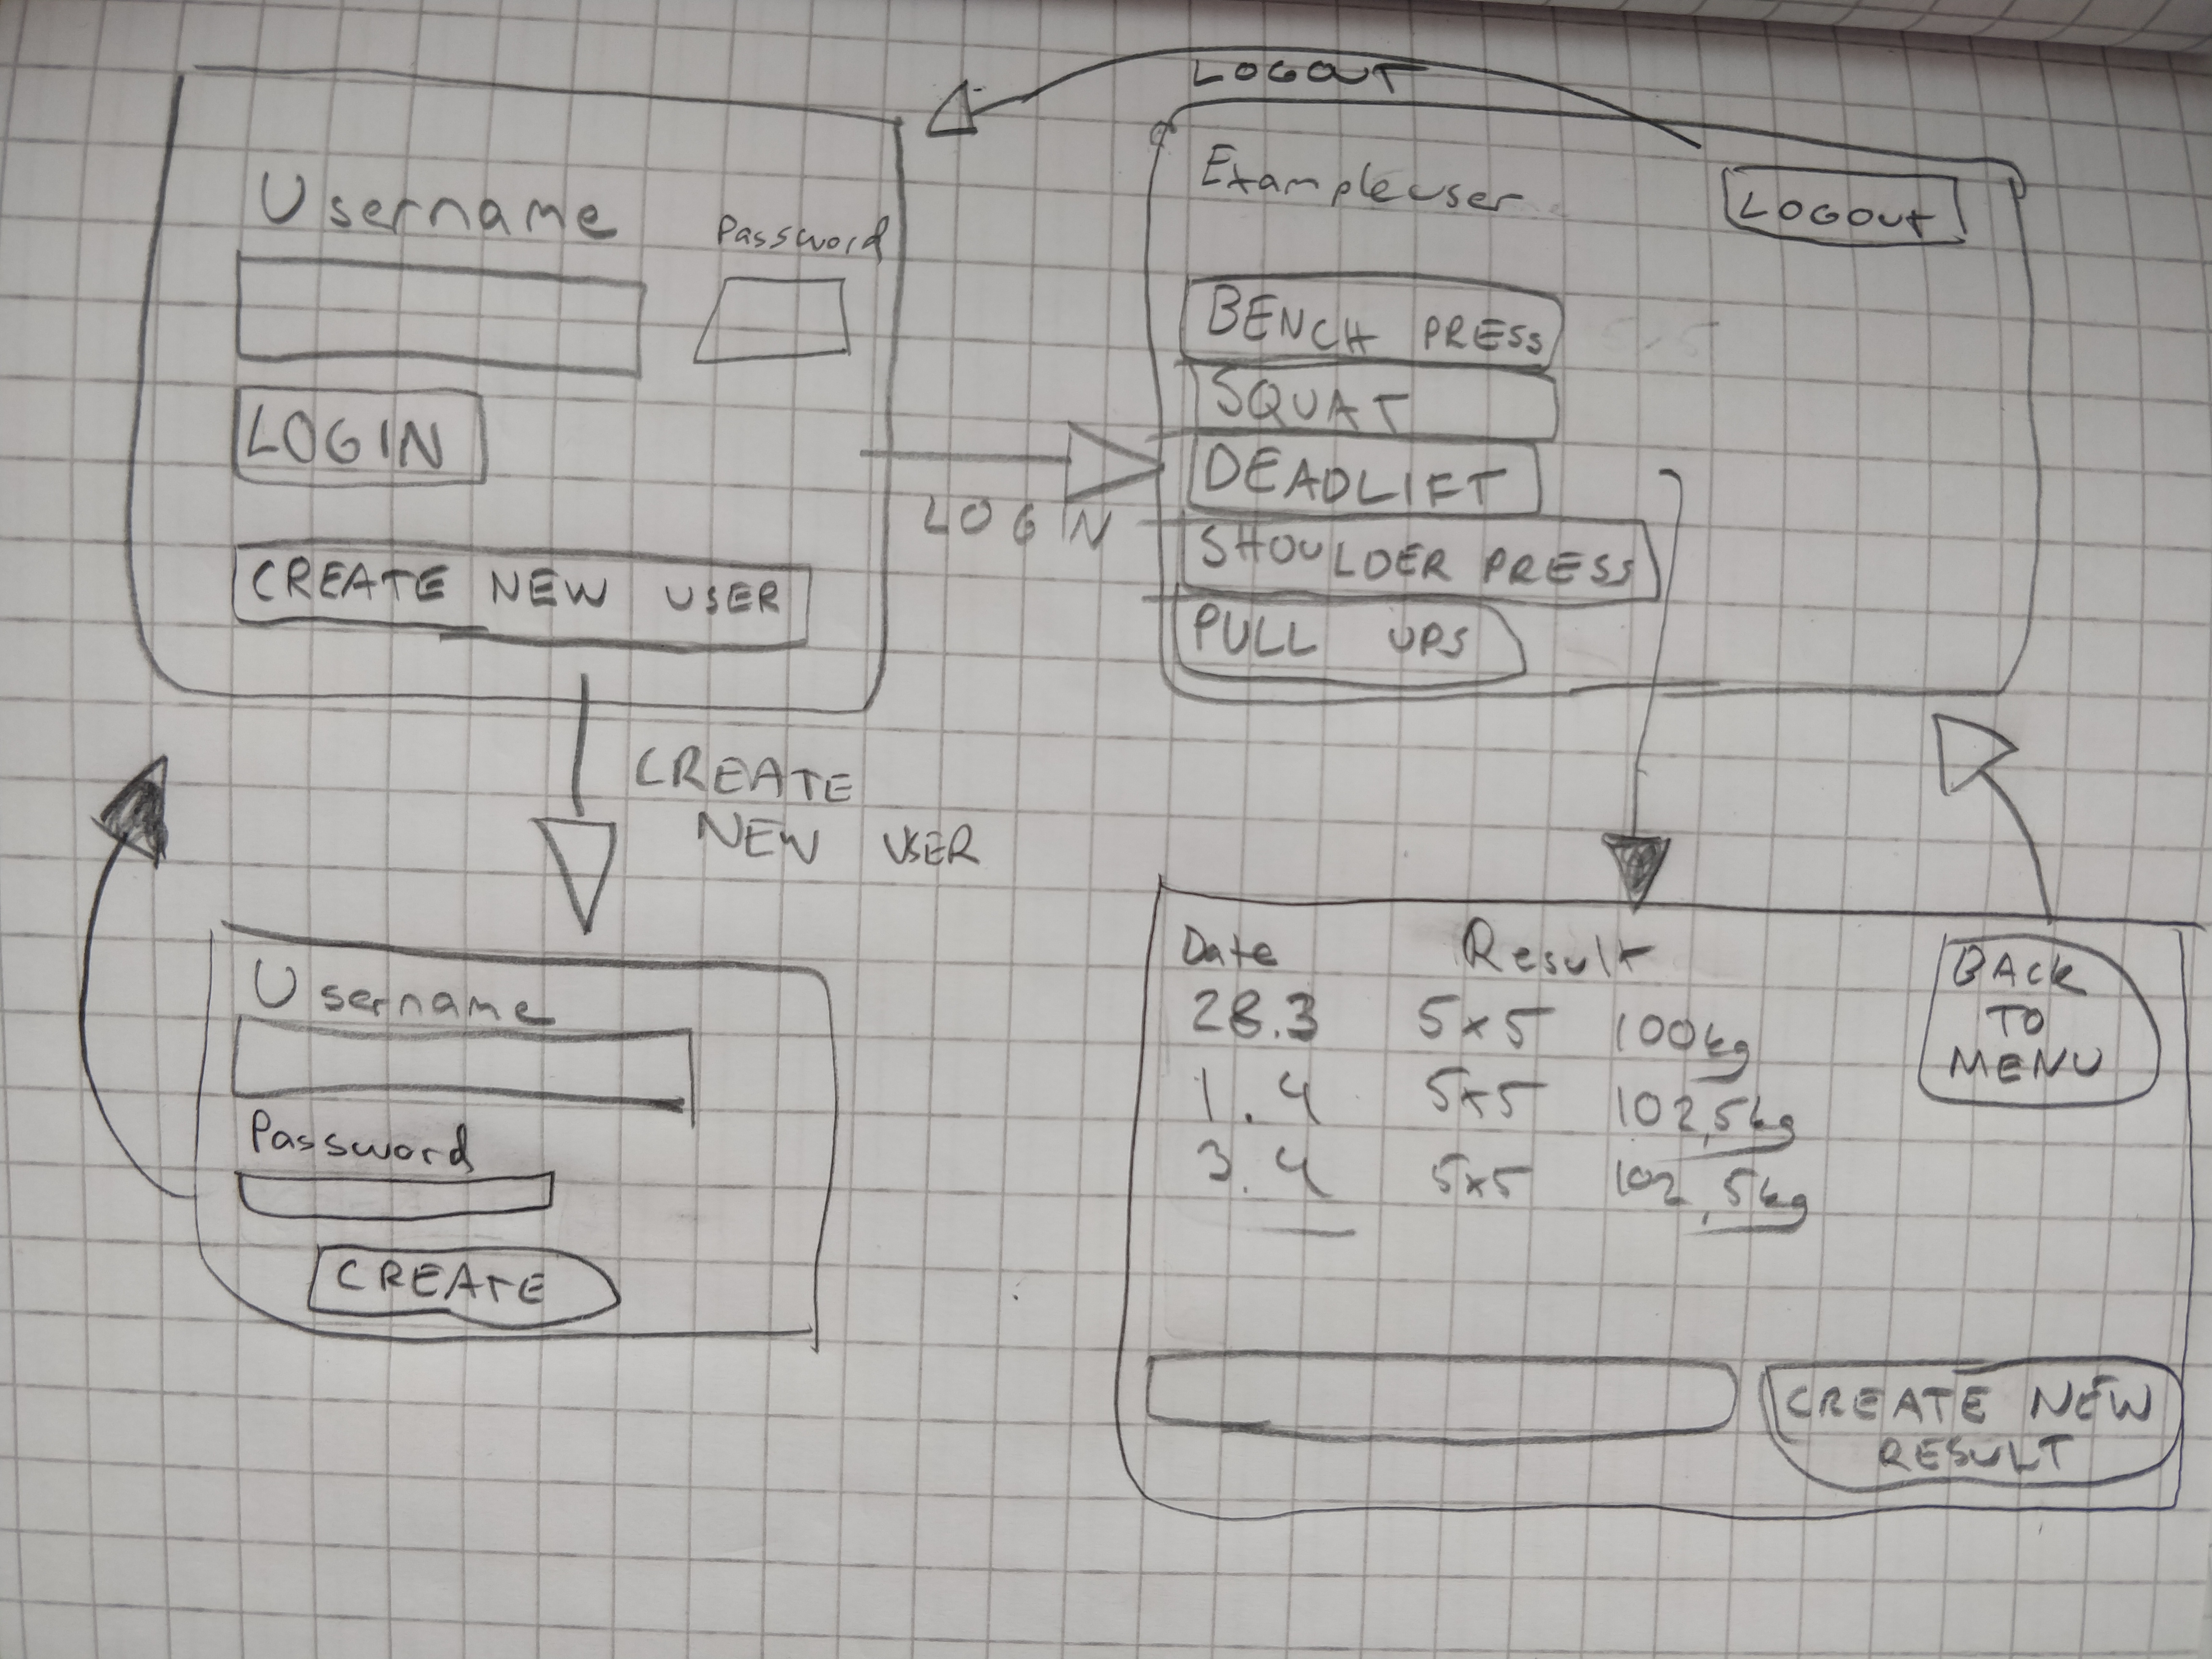 Username
Password
LOGIN
CREATE NEW USER
LOGOUT
Exampleuser
LOGOUT
BENCH PRESS
SQUAT
DEADLIFT
SHOULDER PRESS
PULL UPS
LOGIN
CREATE
NEW USER
Username
Password
CREATE
Date Result
28.3 5x5 100kg
1.4 5x5 102,5kg
3.4 5x5 102,5kg
BACK
TO
MENU
CREATE NEW
RESULT